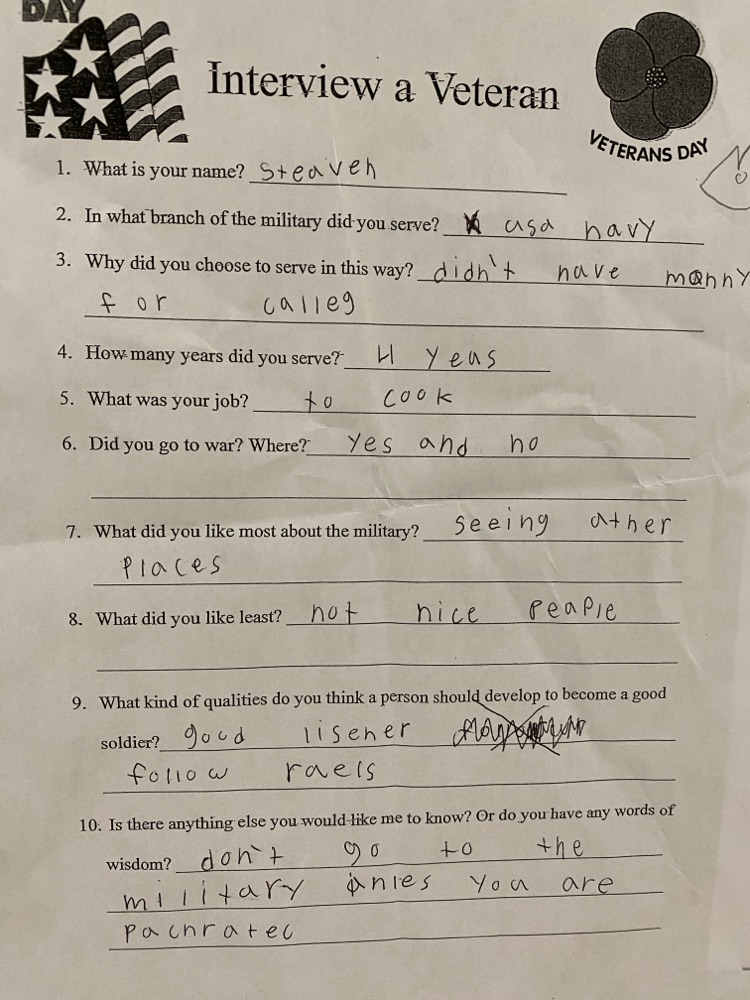 DAY
Interview a Veteran
VETERANS DAY
1. What is your name? Steaven
2. In what branch of the military did you serve? usa navy
3. Why did you choose to serve in this way? didn't have manny
for calleg
4. How many years did you serve? 4 yeas
5. What was your job? to cook
6. Did you go to war? Where? yes and no
7. What did you like most about the military? seeing ather
places
8. What did you like least? not nice peaple
9. What kind of qualities do you think a person should develop to become a good
soldier? good lisener
follow raels
10. Is there anything else you would like me to know? Or do you have any words of
wisdom? don't go to the
military anles you are
pachratec